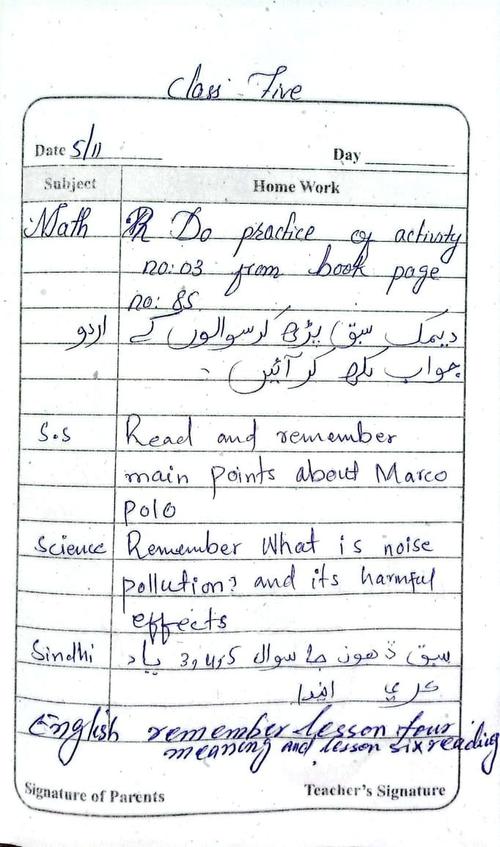 Class Five
Date 5/11 Day
Subject Home Work
Math Do practice of activity
no: 03 from book page
no: 85
اردو دیمک سبق پڑھ کر سوالوں کے
جواب لکھ کر آئیں۔
S.S Read and remember
main points about Marco
Polo
Science Remember What is noise
pollution? and its harmful
effects
Sindhi سبق ڏھون جا سوال 3,4,5 ياد
ڪري ايندا
English remember lesson four
meaning and lesson six reading
Signature of Parents Teacher's Signature